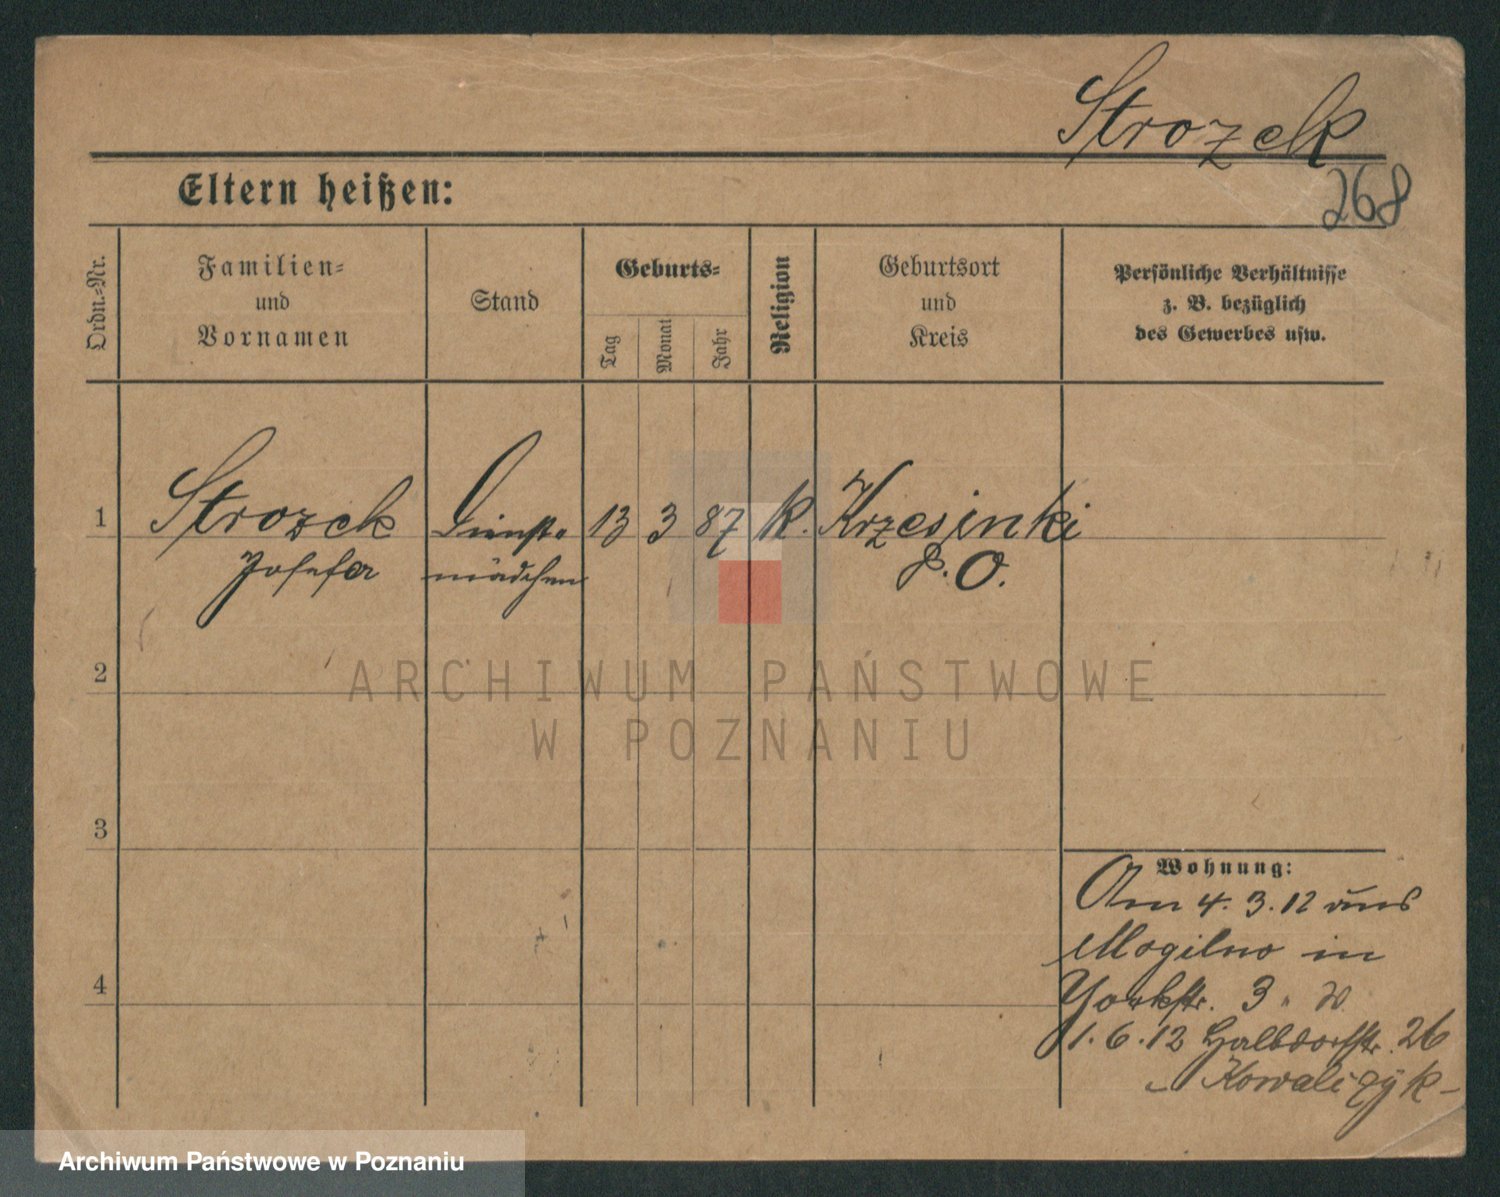 Strozek
268
Eltern heißen:
Ordn.-Nr.
Familien-
und
Vornamen
Stand
Geburts-
Tag
Monat
Jahr
Religion
Geburtsort
und
Kreis
Persönliche Verhältnisse
z. B. bezüglich
des Gewerbes usw.
1 Strozek Dienst- 13 3 87 k. Krzesinki
Josefa mädchen P. O.
2
3
4
Wohnung:
Am 4. 3. 12 aus
Mogilno in
Yorkstr. 3
1. 6. 12 Halbdorfstr. 26
Kowalczyk
ARCHIWUM PAŃSTWOWE
W POZNANIU
Archiwum Państwowe w Poznaniu